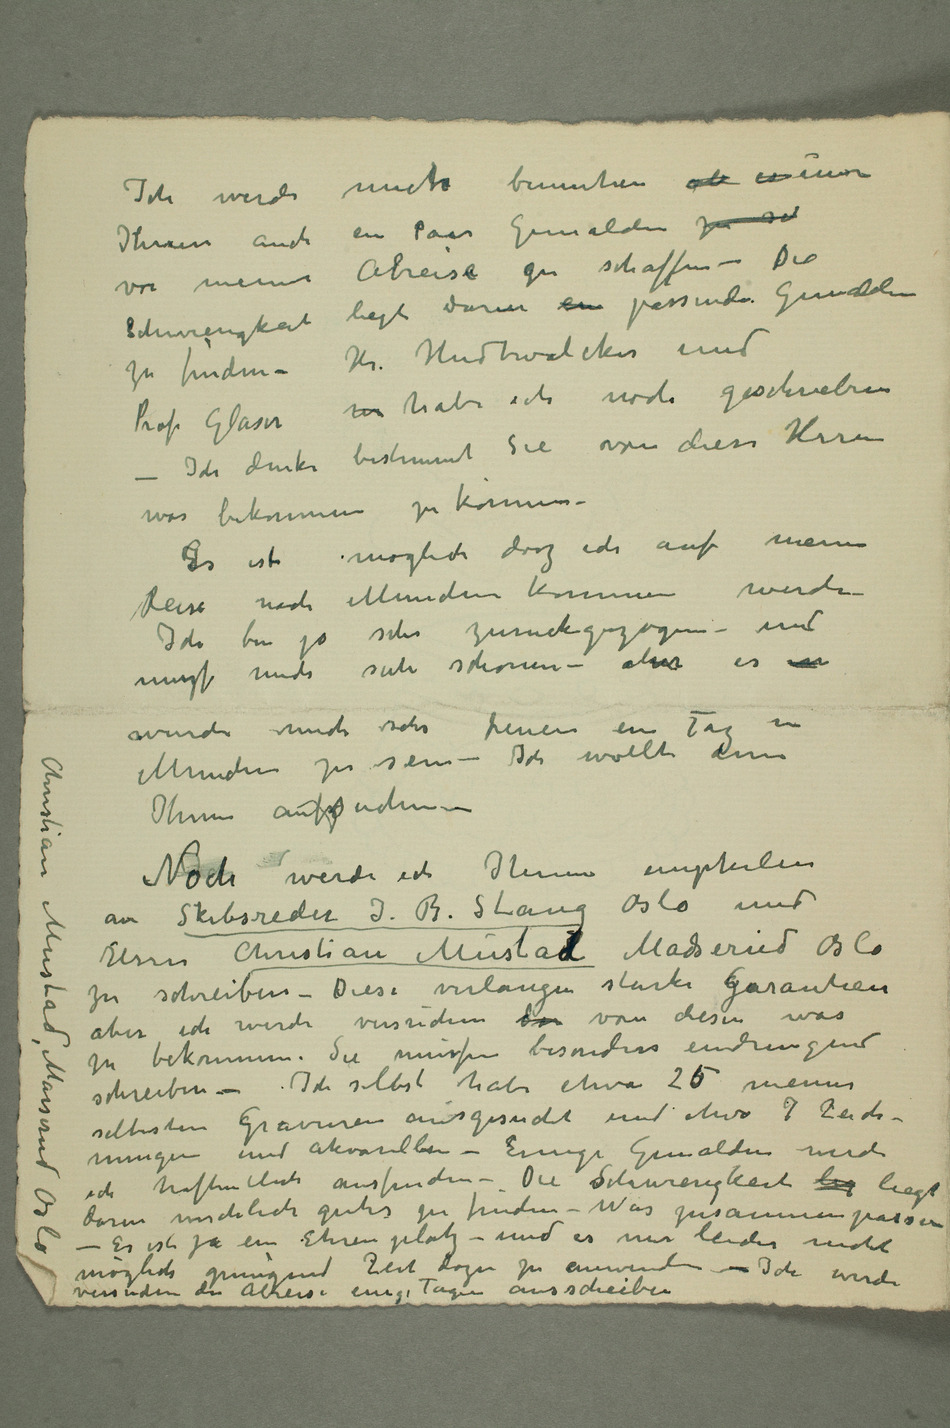 Ich werde mich bemuhen ob es immer
Ihnen auch ein Paar Gemalden zu sch
vor meiner Abreise zu schaffen – Die
Schwierigkeit liegt darin ein passende Gemalden
zu finden – Hr. Hudtwalcker und
Prof Glaser habe ich noch geschrieben
– Ich denke bestimmt Sie von diese Herren
was bekommen zu können –
Es ist moglich dasz ich auf meine
Reise nach Munchen kommen werde –
Ich bin jo sehr zuruckgezogen – und
musz mich sehr schonen – aber es
wurde mich sehr freuen ein Tag in
Munchen zu sein – Ich wollte denn
Ihnen aufsuchen –
Noch werde ich Ihnen empfehlen
an Skibsreder J. B. Stang Oslo und
Herrn Christian Mustad Madserud Oslo
zu schreiben – Diese verlangen starke Garantien
aber ich werde versuchen von diesen was
zu bekommen. Sie mussen besonders eindringend
schreiben – Ich selbst habe etwa 25 meiner
seltesten Gravuren ausgesucht und etwa 7 Zeich-
nungen und Akvarellen – Einige Gemalden werde
ich hoffentlich ausfinden – Die Schwierigkeit lieg liegt
darin wirklich gutes zu finden – Was zusammen passen
– Es ist ja ein Ehrenplatz – und es mir leider nicht
möglich genugend Zeit dazu zu anwenden – Ich werde
versuchen die Abreise einige Tagen ausschieben
Christian Mustad, Masserud Oslo